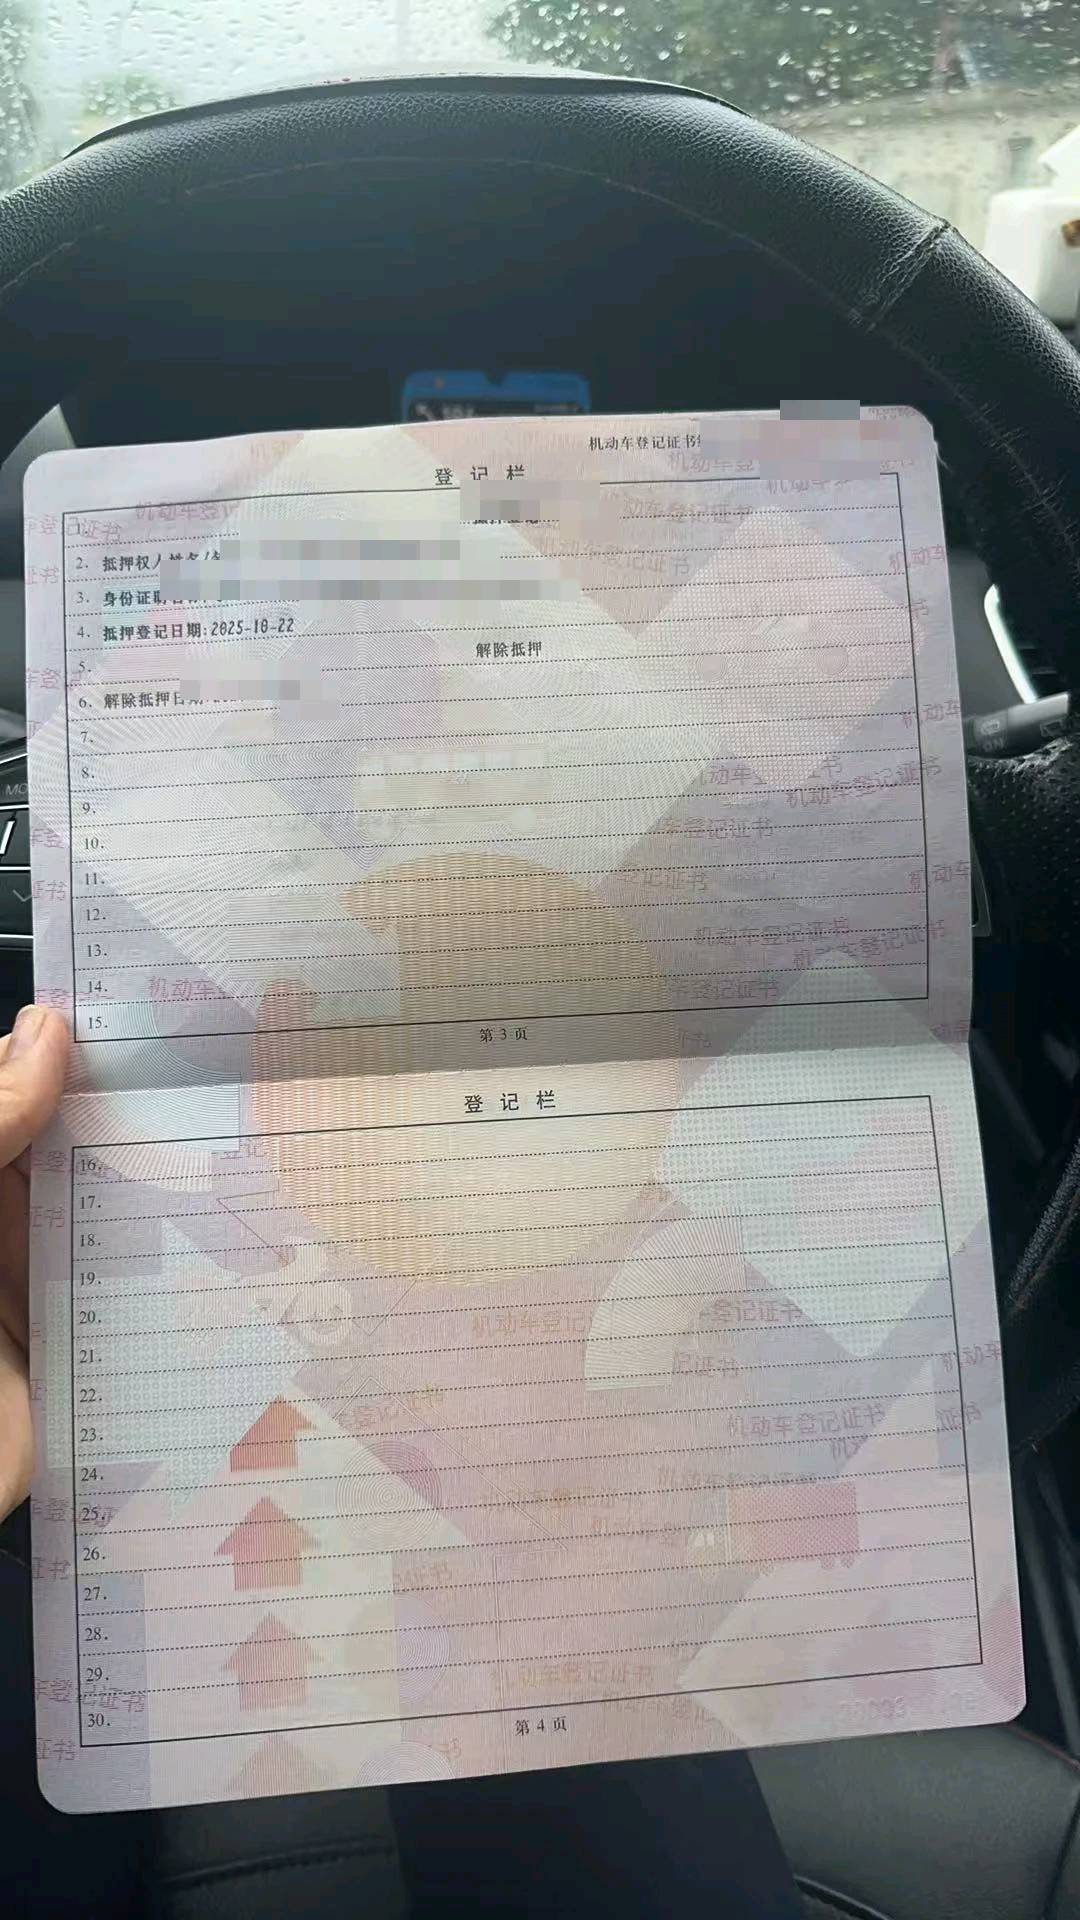 机动车登记证书
登记栏
1.
2. 抵押权人姓名/
3. 身份证明名称
4. 抵押登记日期:2025-10-22
5. 解除抵押
6. 解除抵押日期:
7.
8.
9.
10.
11.
12.
13.
14.
15.
第 3 页
登记栏
16.
17.
18.
19.
20.
21.
22.
23.
24.
25.
26.
27.
28.
29.
30.
第 4 页